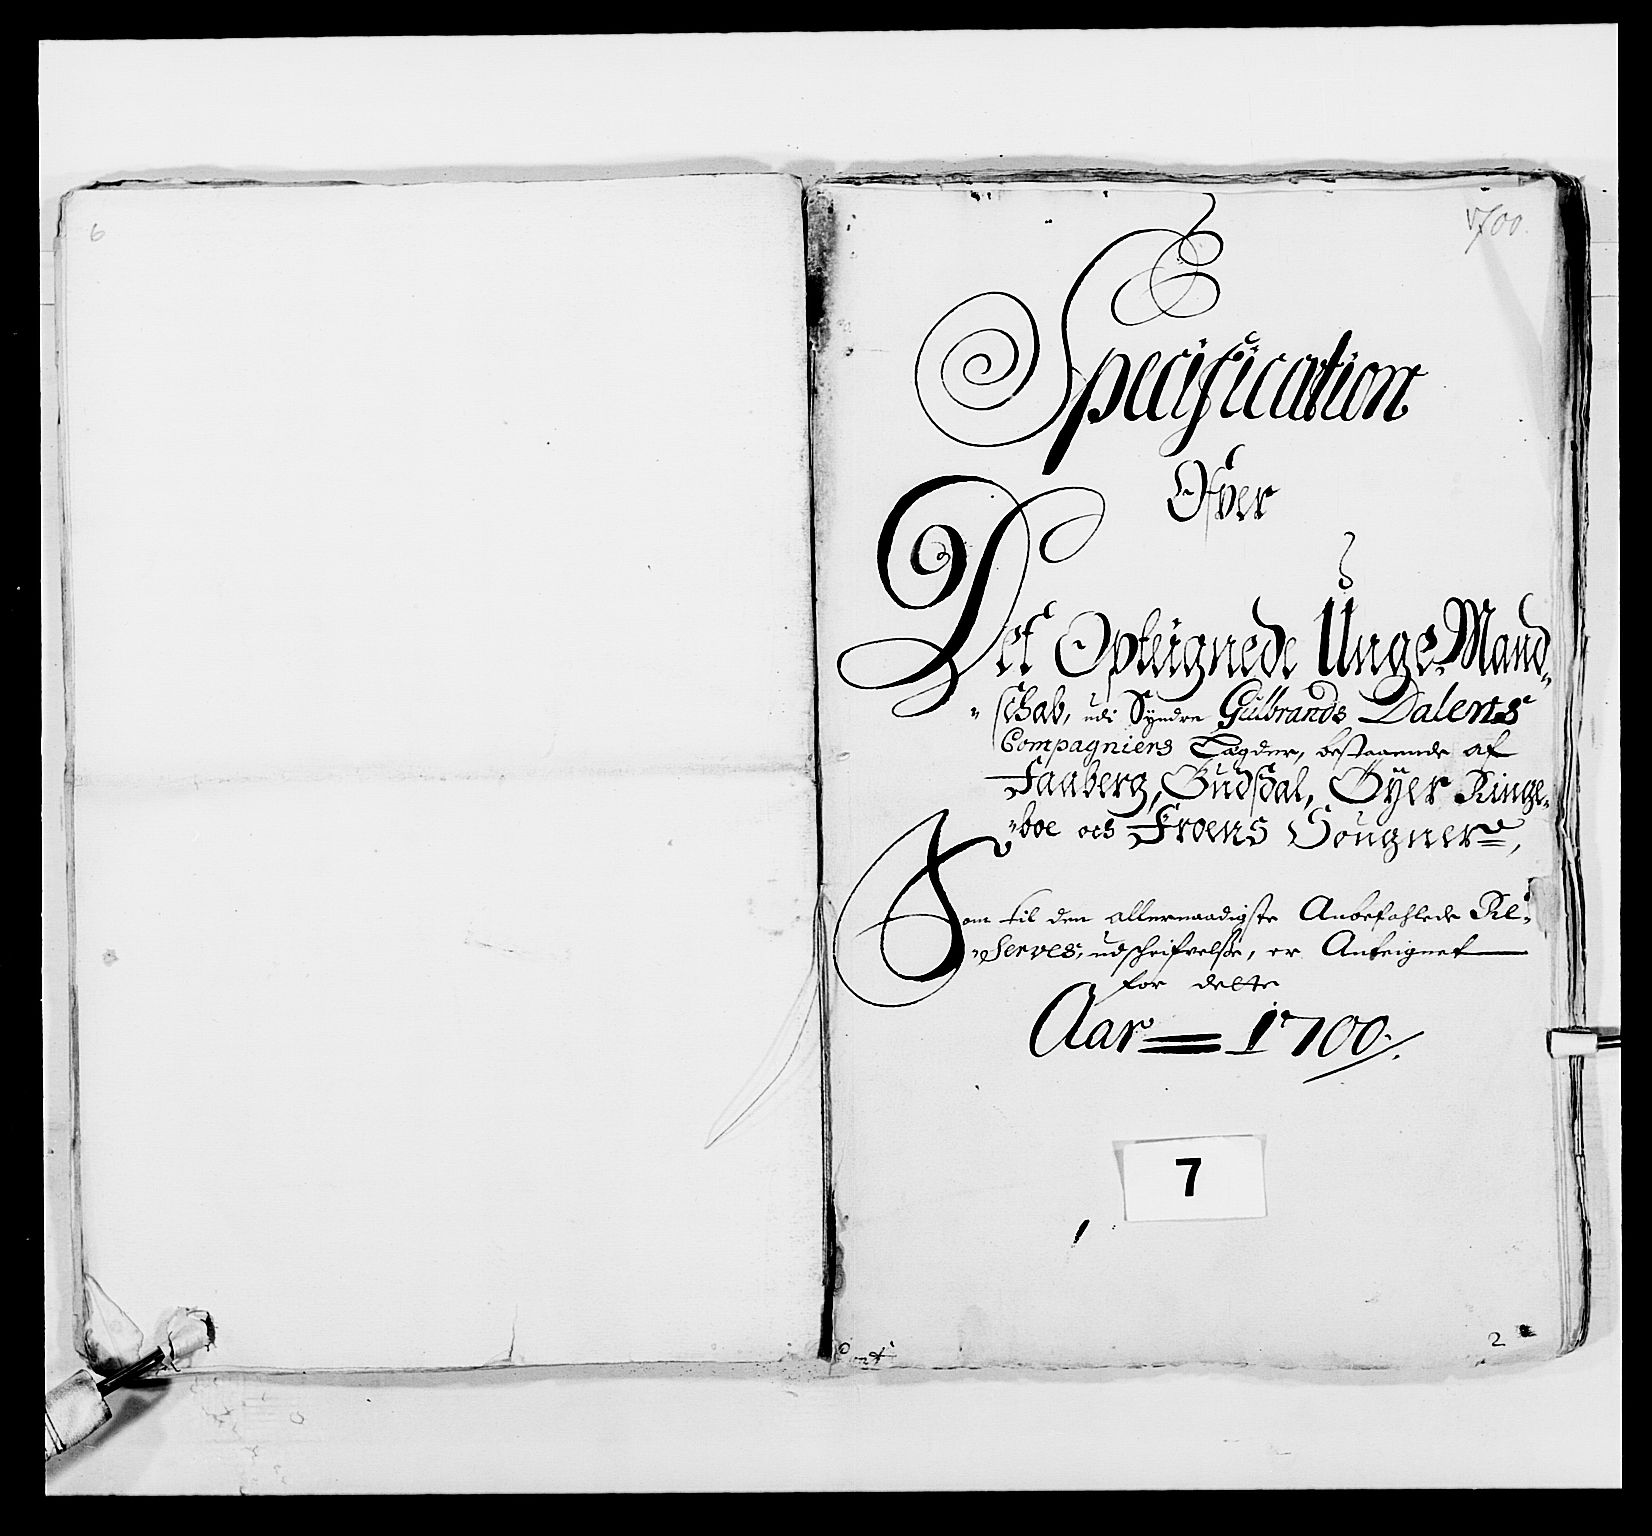 6
1700.
Specification
Ofver
Det Opteignede Unge Mand„
„schab, udi Syndre Gulbrands Dalens
Compagniers Lægder, bestaaende af
Faaberg, Gudsdal, Öyer Ringe„
„boe och Froens Sougner,
Som til den allernaadigste Anbefahlede Re„
„serves, udschrifvelsse, er Anteignet
for dette
Aar 1700.
7
2